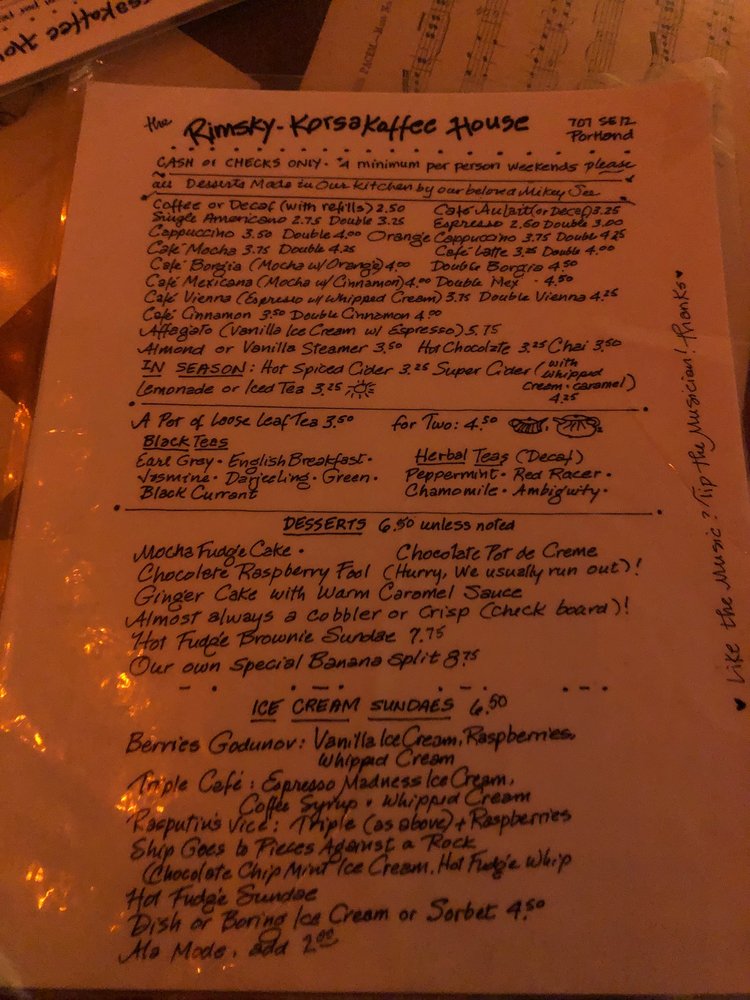 rsakoffee Hou
PACEM
the Rimsky-Korsakoffee House
707 SE 12
Portland
CASH or CHECKS ONLY · $4 minimum per person weekends please
all Desserts Made in Our Kitchen by our beloved Mikey Jee
Coffee or Decaf (with refills) 2.50 Café Au lait (or Decaf) 3.25
Single Americano 2.75 Double 3.25 Espresso 2.50 Double 3.00
Cappuccino 3.50 Double 4.00 Orange Cappuccino 3.75 Double 4.25
Café Mocha 3.75 Double 4.25 Café Latte 3.25 Double 4.00
Café Borgia (Mocha w/ Orange) 4.00 Double Borgia 4.50
Café Mexicana (Mocha w/ Cinnamon) 4.00 Double Mex · 4.50
Café Vienna (Espresso w/ Whipped Cream) 3.75 Double Vienna 4.25
Café Cinnamon 3.50 Double Cinnamon 4.00
Affagato (Vanilla Ice Cream w/ Espresso) 5.75
Almond or Vanilla Steamer 3.50 Hot Chocolate 3.25 Chai 3.50
IN SEASON: Hot Spiced Cider 3.25 Super Cider (with whipped cream · caramel) 4.25
Lemonade or Iced Tea 3.25
A Pot of Loose Leaf Tea 3.50 for Two: 4.50
Black Teas
Earl Grey · English Breakfast ·
Jasmine · Darjeeling · Green ·
Black Currant
Herbal Teas (Decaf)
Peppermint · Red Racer ·
Chamomile · Ambiguity ·
DESSERTS 6.50 unless noted
Mocha Fudge Cake · Chocolate Pot de Creme
Chocolate Raspberry Fool (Hurry, We usually run out)!
Ginger Cake with Warm Caramel Sauce
Almost always a cobbler or Crisp (check board)!
Hot Fudge Brownie Sundae 7.75
Our own Special Banana Split 8.75
ICE CREAM SUNDAES 6.50
Berries Godunov: Vanilla Ice Cream, Raspberries,
Whipped Cream
Triple Café: Espresso Madness Ice Cream,
Coffee Syrup · Whipped Cream
Rasputin's Vice: Triple (as above) + Raspberries
Ship Goes to Pieces Against a Rock
(Chocolate Chip Mint Ice Cream, Hot Fudge Whip
Hot Fudge Sundae
Dish of Boring Ice Cream or Sorbet 4.50
Ala Mode, add 2.00
♥ Like the Music? Tip the Musician! Thanks ♥